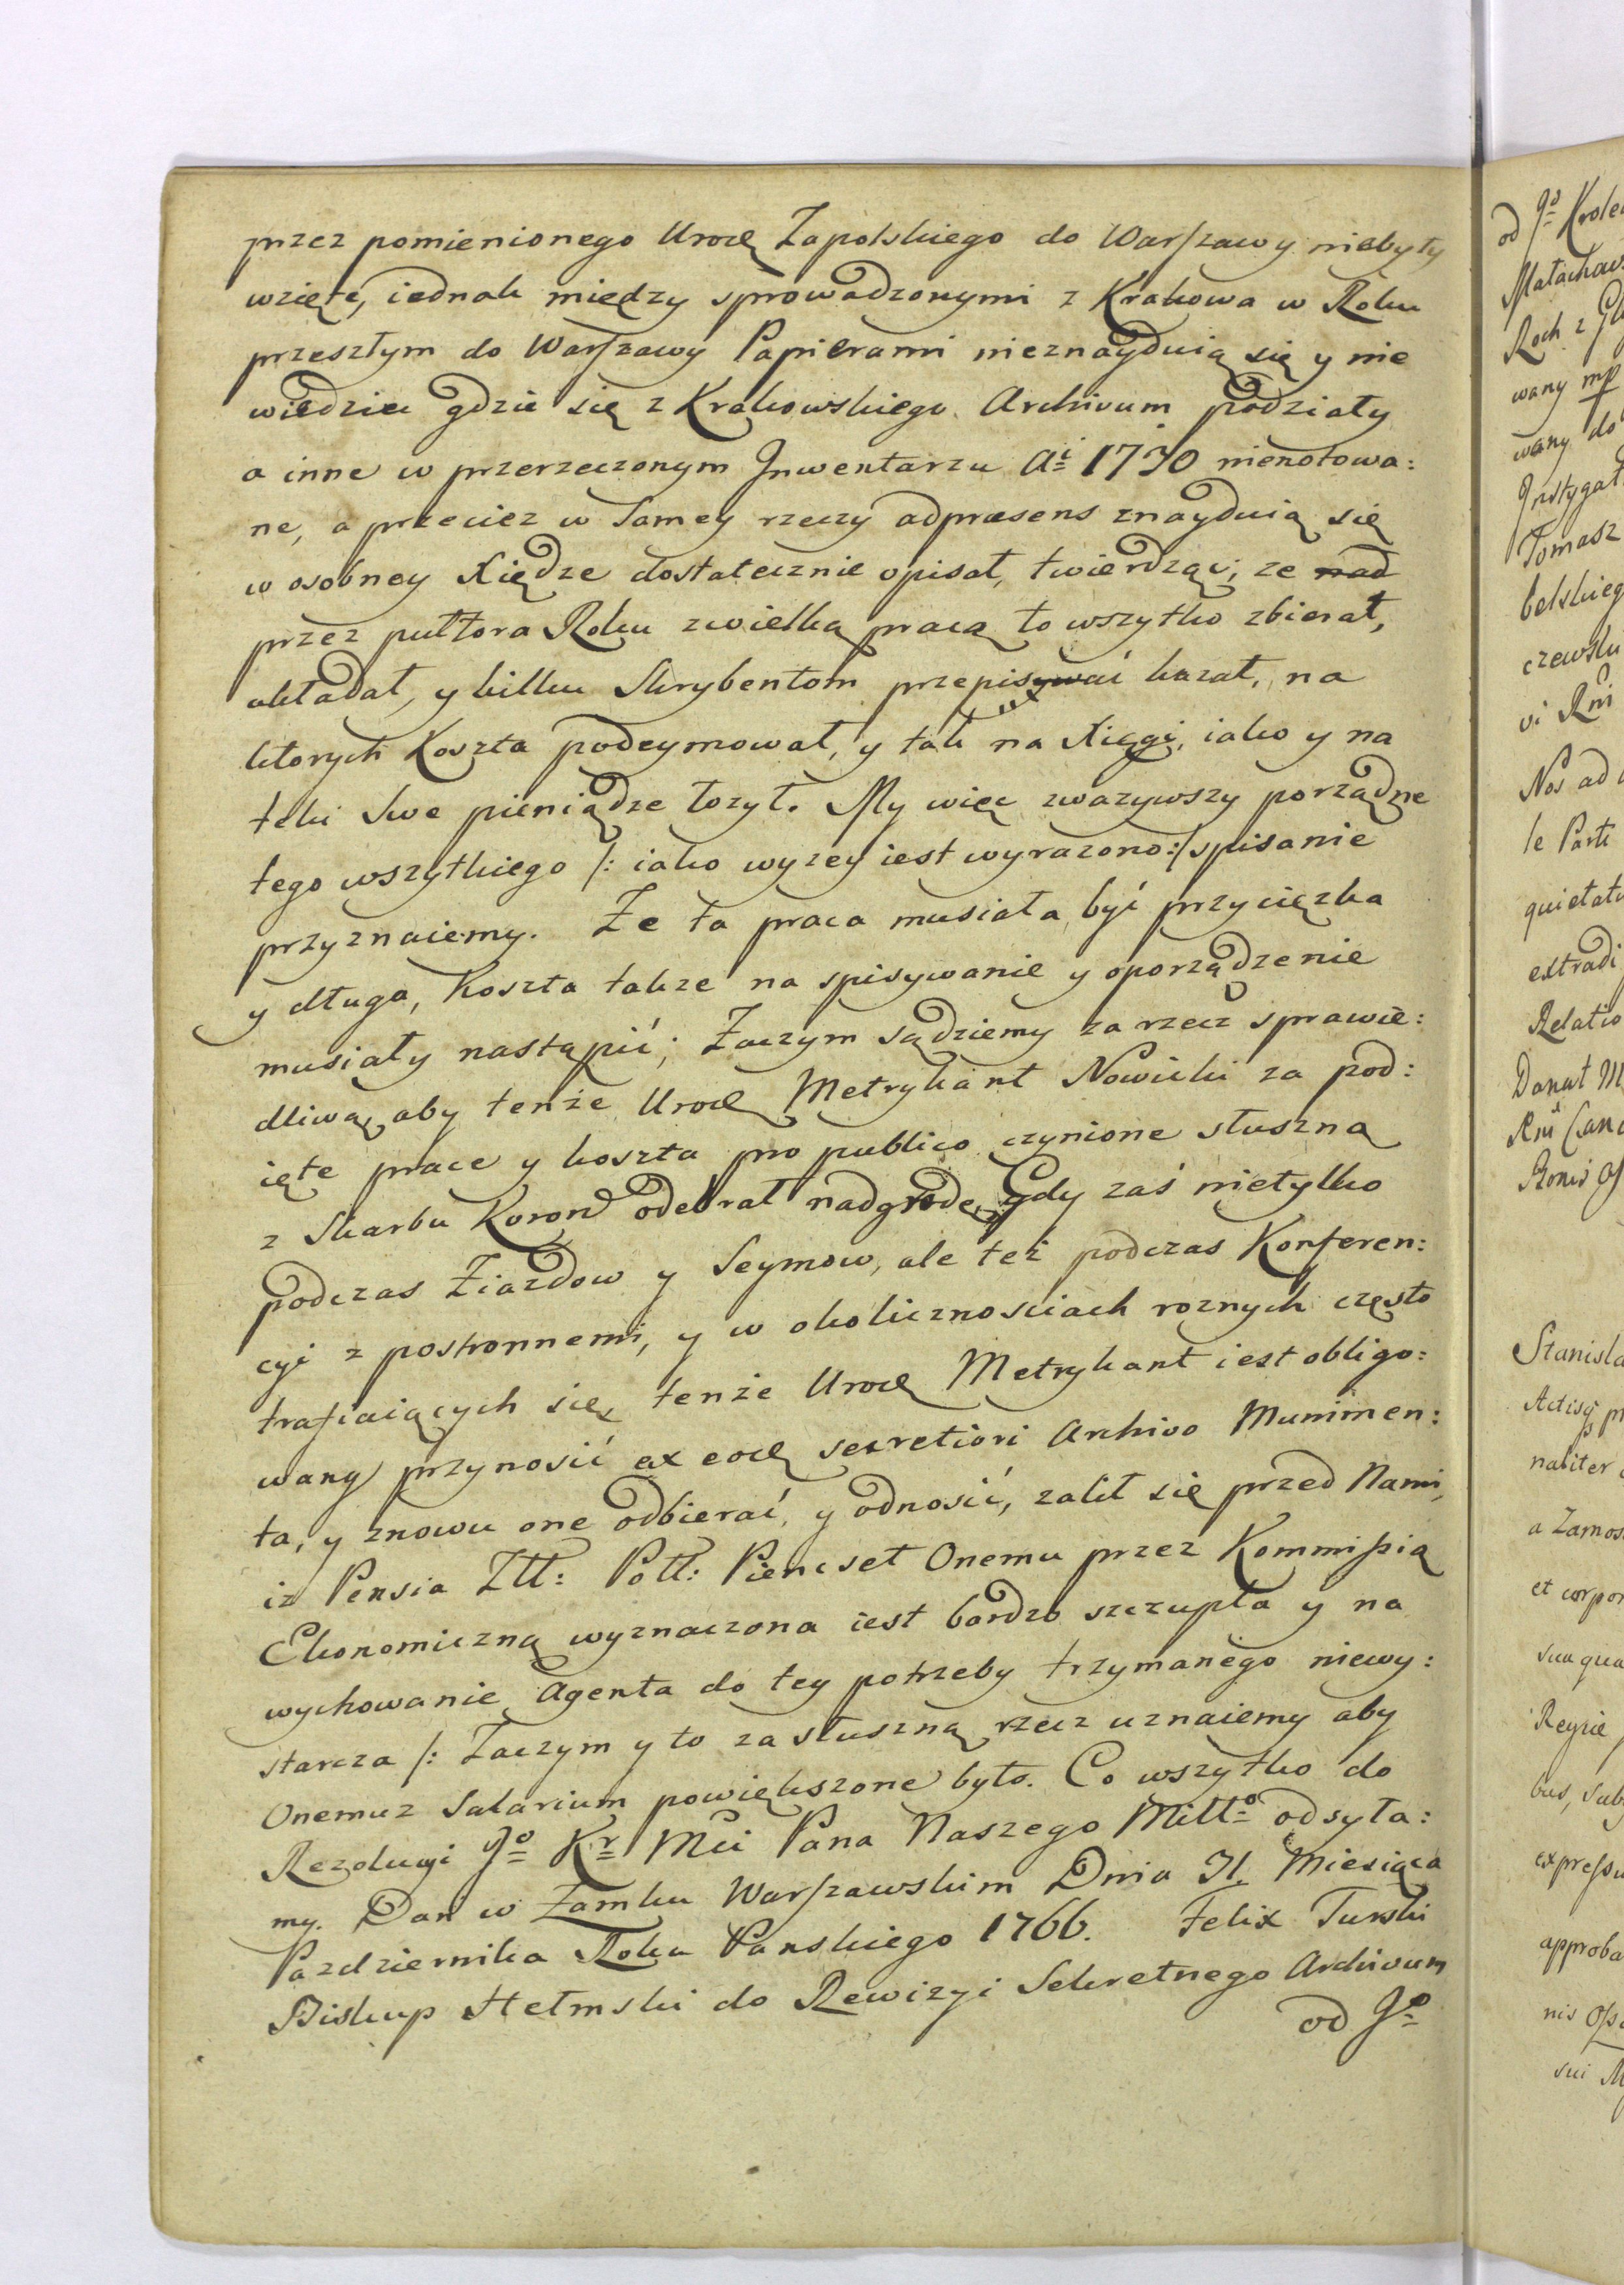 przez pomienionego Urodę Zapolskiego do Warszawy niebyły
wzięte, iednak między sprowadzonymi z Krakowa w Roku
przeszłym do Warszawy Papierami nieznayduią się y nie
wiedzieć gdzie się z Krakowskiego Archivum podziały
a inne w przerzeczonym Jnwentarzu Ai 1730 nienotowa:
ne, a przeciez w Samey rzeczy adpræsens znayduią się
w osobney Xiędze dostatecznie opisał, twierdząc, ze nad
przez pułtora Roku zwielką pracą to wszytko zbierał,
układał, y kilku Skrybentom przepisywać kazał, na
ktorych Koszta podeymował, y tak na Xięgi, iako y na
teki Swe pieniądze łozył. My więc zwazywszy porządne
tego wszytkiego /: iako wyzey iest wyrazono :/ spisanie
przyznaiemy. Ze ta praca musiała być przyciężka
y długa, Koszta takze na spisywanie y oporządzenie
musiały nastąpić; Zaczym sądziemy za rzecz sprawie:
dliwą, aby tenże Urod Metrykant Nowicki za pod:
ięte prace y koszta pro publico czynione słuszną
z Skarbu Koron odebrał nadgrodę, Gdy zaś nietylko
podczas Ziazdow y Seymow, ale też podczas Konferen:
cyi z postronnemi, y w okolicznosciach roznych często
trafiaiących się, tenże Urod Metrykant iest obligo:
wany przynosić ex eod secretiori Archivo Munimen:
ta, y znowu one odbierać, y odnosić, zalił się przed Nami,
iz Pensia Złł: Poll: Piencset Onemu przez Kommissią
Ekonomiczną wyznaczona iest bardzo szczupła y na
wychowanie Agenta do tey potrzeby trzymanego niewy:
starcza /: Zaczym y to za słuszną rzecz uznaiemy aby
Onemuz Salarium powiększone było. Co wszytko do
Rezolucyi Jo Kr Mci Pana Naszego Miłło odsyła:
my. Dan w Zamku Warszawskim Dnia 31. Miesiąca
Pazdziernika Roku Panskiego 1766. Felix Turski
Biskup Hełmski do Rewizyi Sekretnego Archivum
od Jo
od Jo
Roch z
wany mp
wany do
Tomasz
Nos ad
Relatio
a Zamos
et corpor
approba